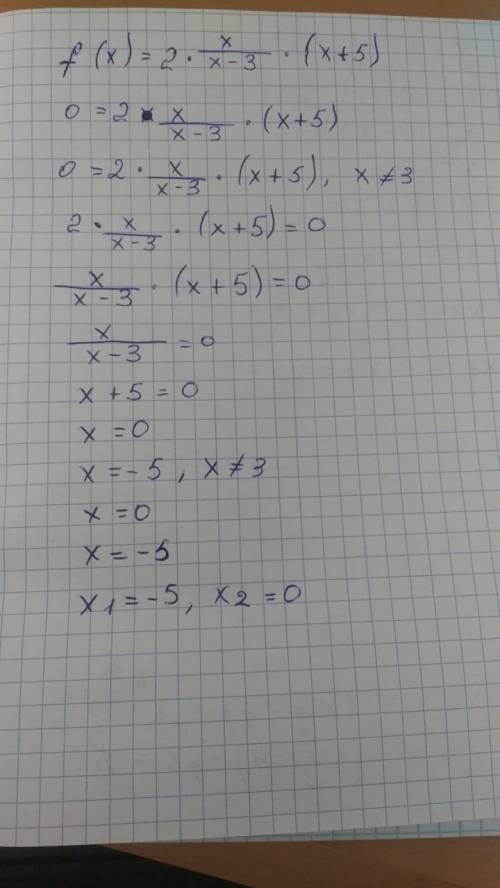 f(x) = 2 · x/(x-3) · (x+5)
0 = 2 · x/(x-3) · (x+5)
0 = 2 · x/(x-3) · (x+5), x ≠ 3
2 · x/(x-3) · (x+5) = 0
x/(x-3) · (x+5) = 0
x/(x-3) = 0
x + 5 = 0
x = 0
x = -5, x ≠ 3
x = 0
x = -5
x1 = -5, x2 = 0